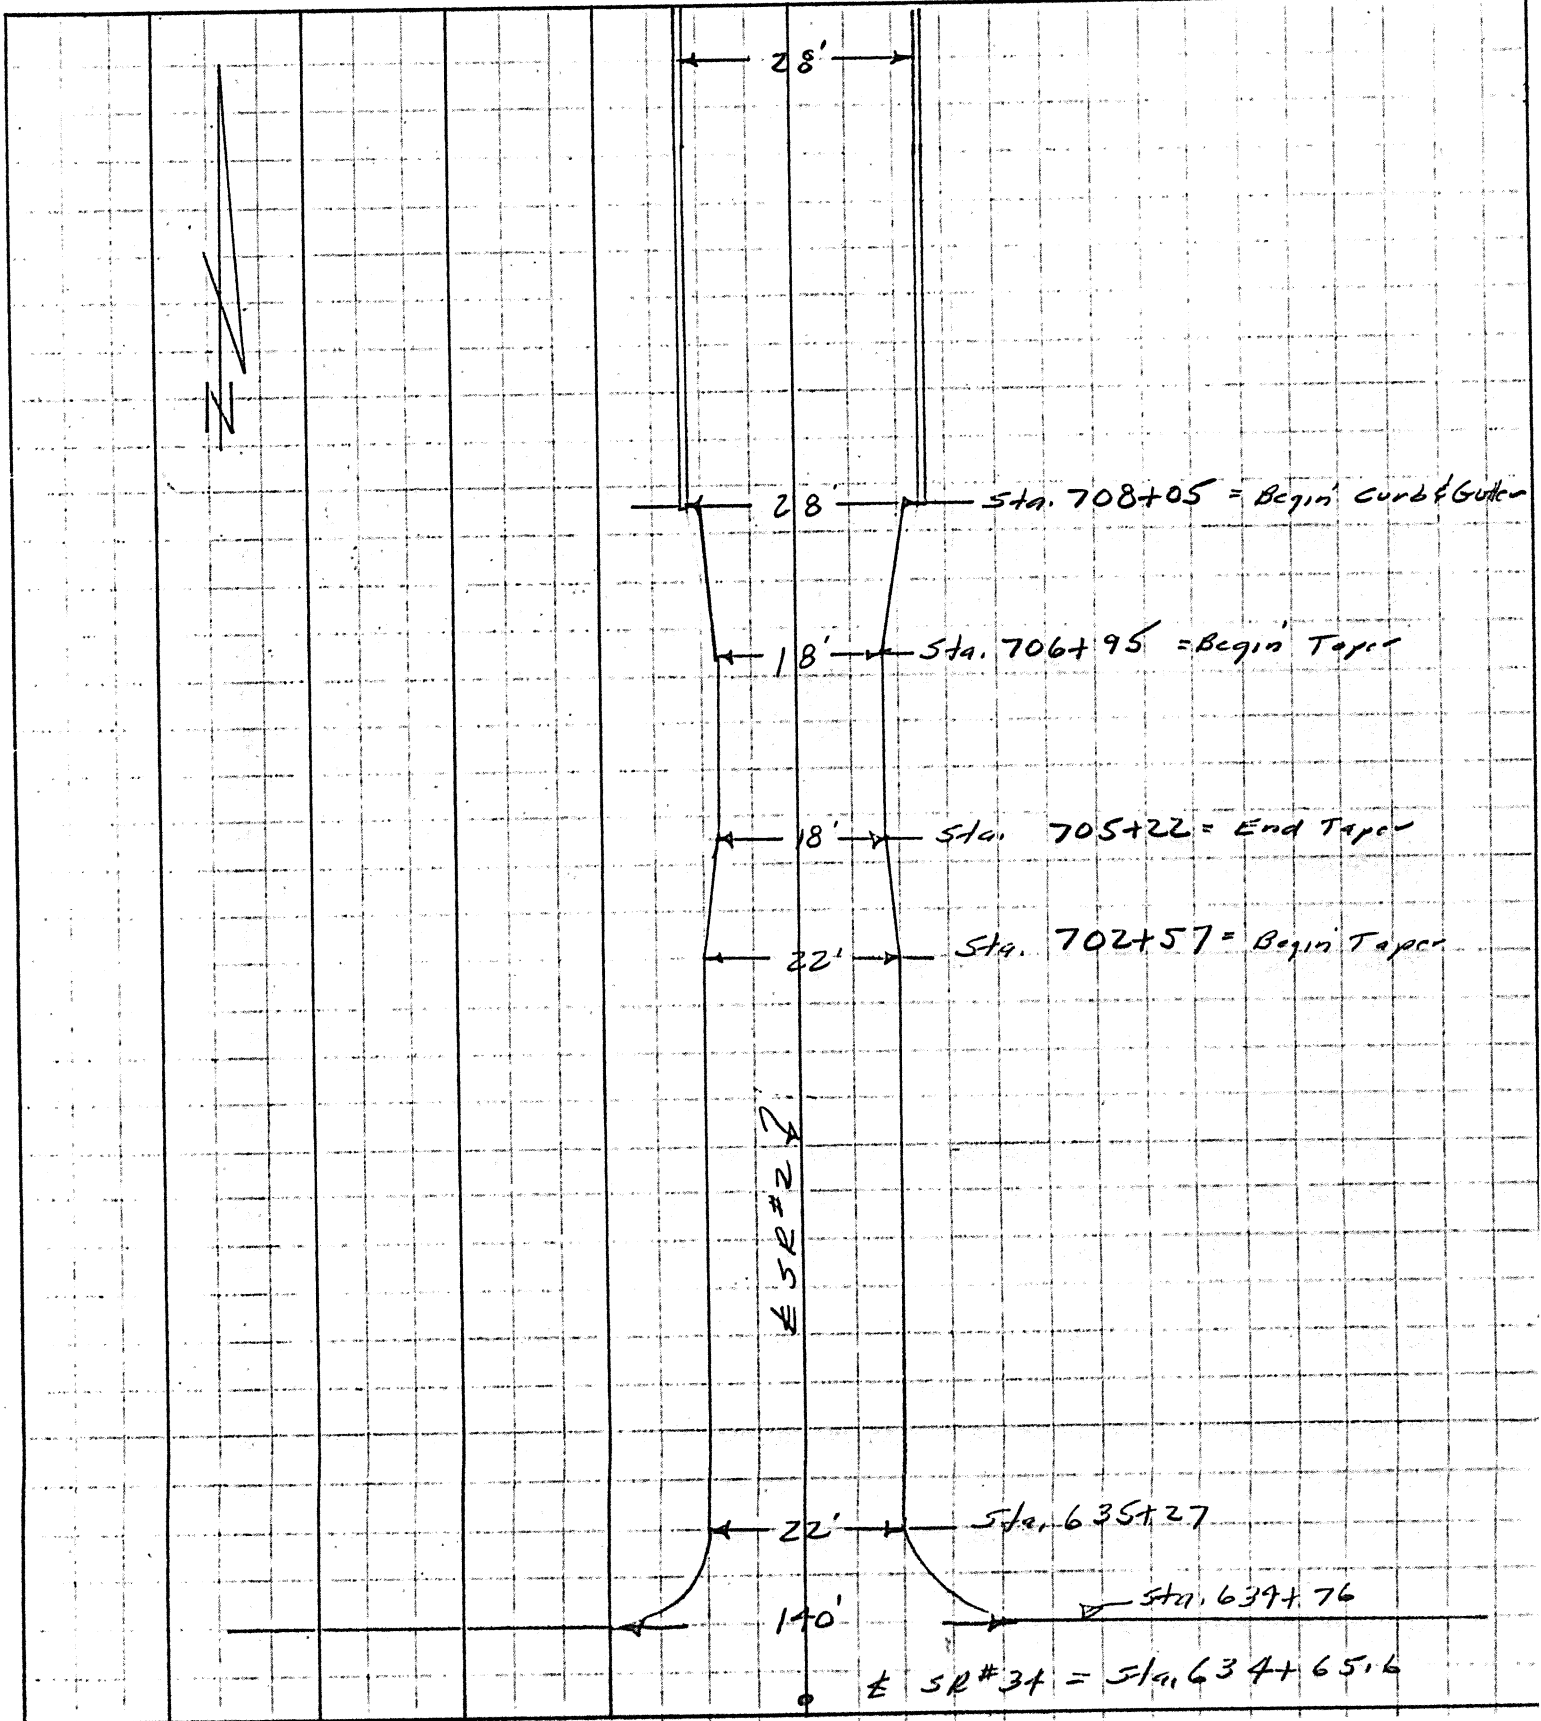 28'
N
28' Sta. 708+05 = Begin Curb & Gutter
18' Sta. 706+95 = Begin Taper
18' Sta. 705+22 = End Taper
22' Sta. 702+57 = Begin Taper
℄ SR#2
22' Sta. 635+27
140' Sta. 634+76
℄ SR#34 = Sta. 634+65.6